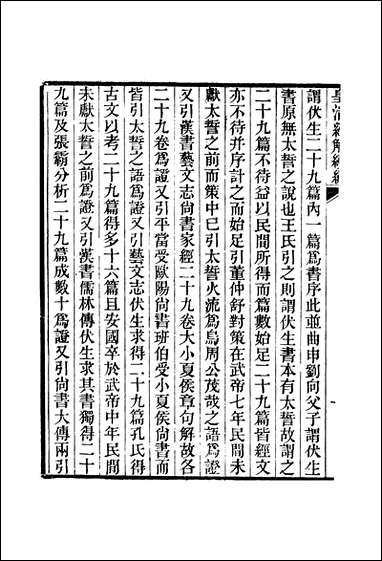 皇淸經解續編
謂伏生二十九篇內一篇爲書序此並曲申劉向父子謂伏生
書原無太誓之說也王氏引之則謂伏生書本有太誓故謂之
二十九篇不待益以民間所得而篇數始足二十九篇皆經文
亦不待并序計之而始足引董仲舒對策在武帝七年民間未
獻太誓之前而策中已引太誓火流爲烏周公茂哉之語爲證
又引漢書藝文志尙書家經二十九卷大小夏侯章句解故各
二十九卷爲證又引平當受歐陽尙書班伯受小夏侯尙書而
皆引太誓之語爲證又引藝文志伏生求得二十九篇孔氏得
古文以考二十九篇得多十六篇且安國卒於武帝中年民間
未獻太誓之前爲證又引漢書儒林傳伏生求其書獨得二十
九篇及張霸分析二十九篇成數十爲證又引尙書大傳兩引